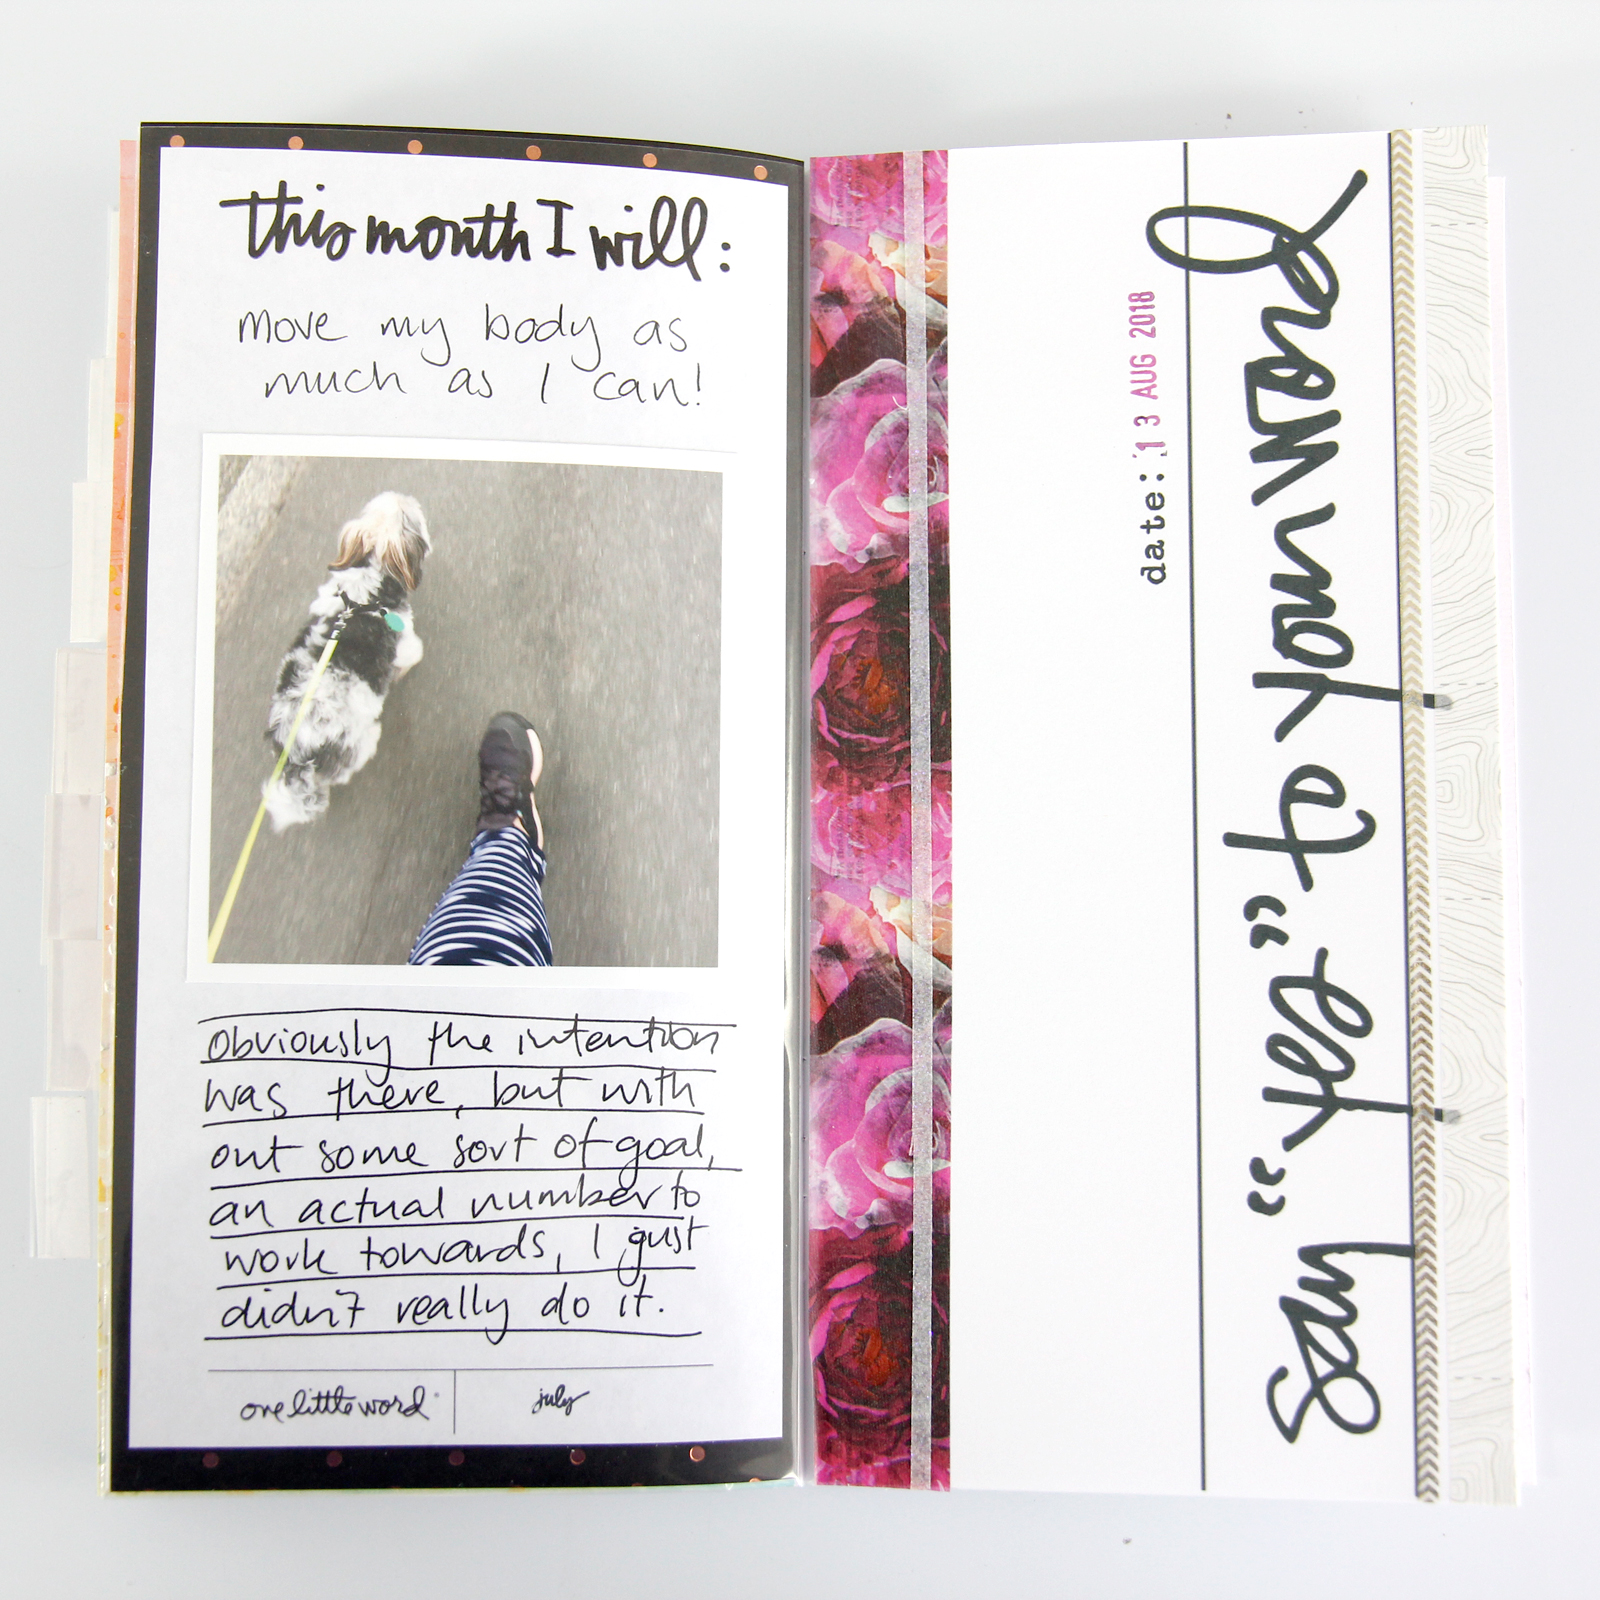 this month I will:
move my body as
much as I can!
obviously the intention
was there, but with
out some sort of goal,
an actual number to
work towards, I just
didn't really do it.
one little word
july
date: 13 AUG 2018
say "yes" to your word